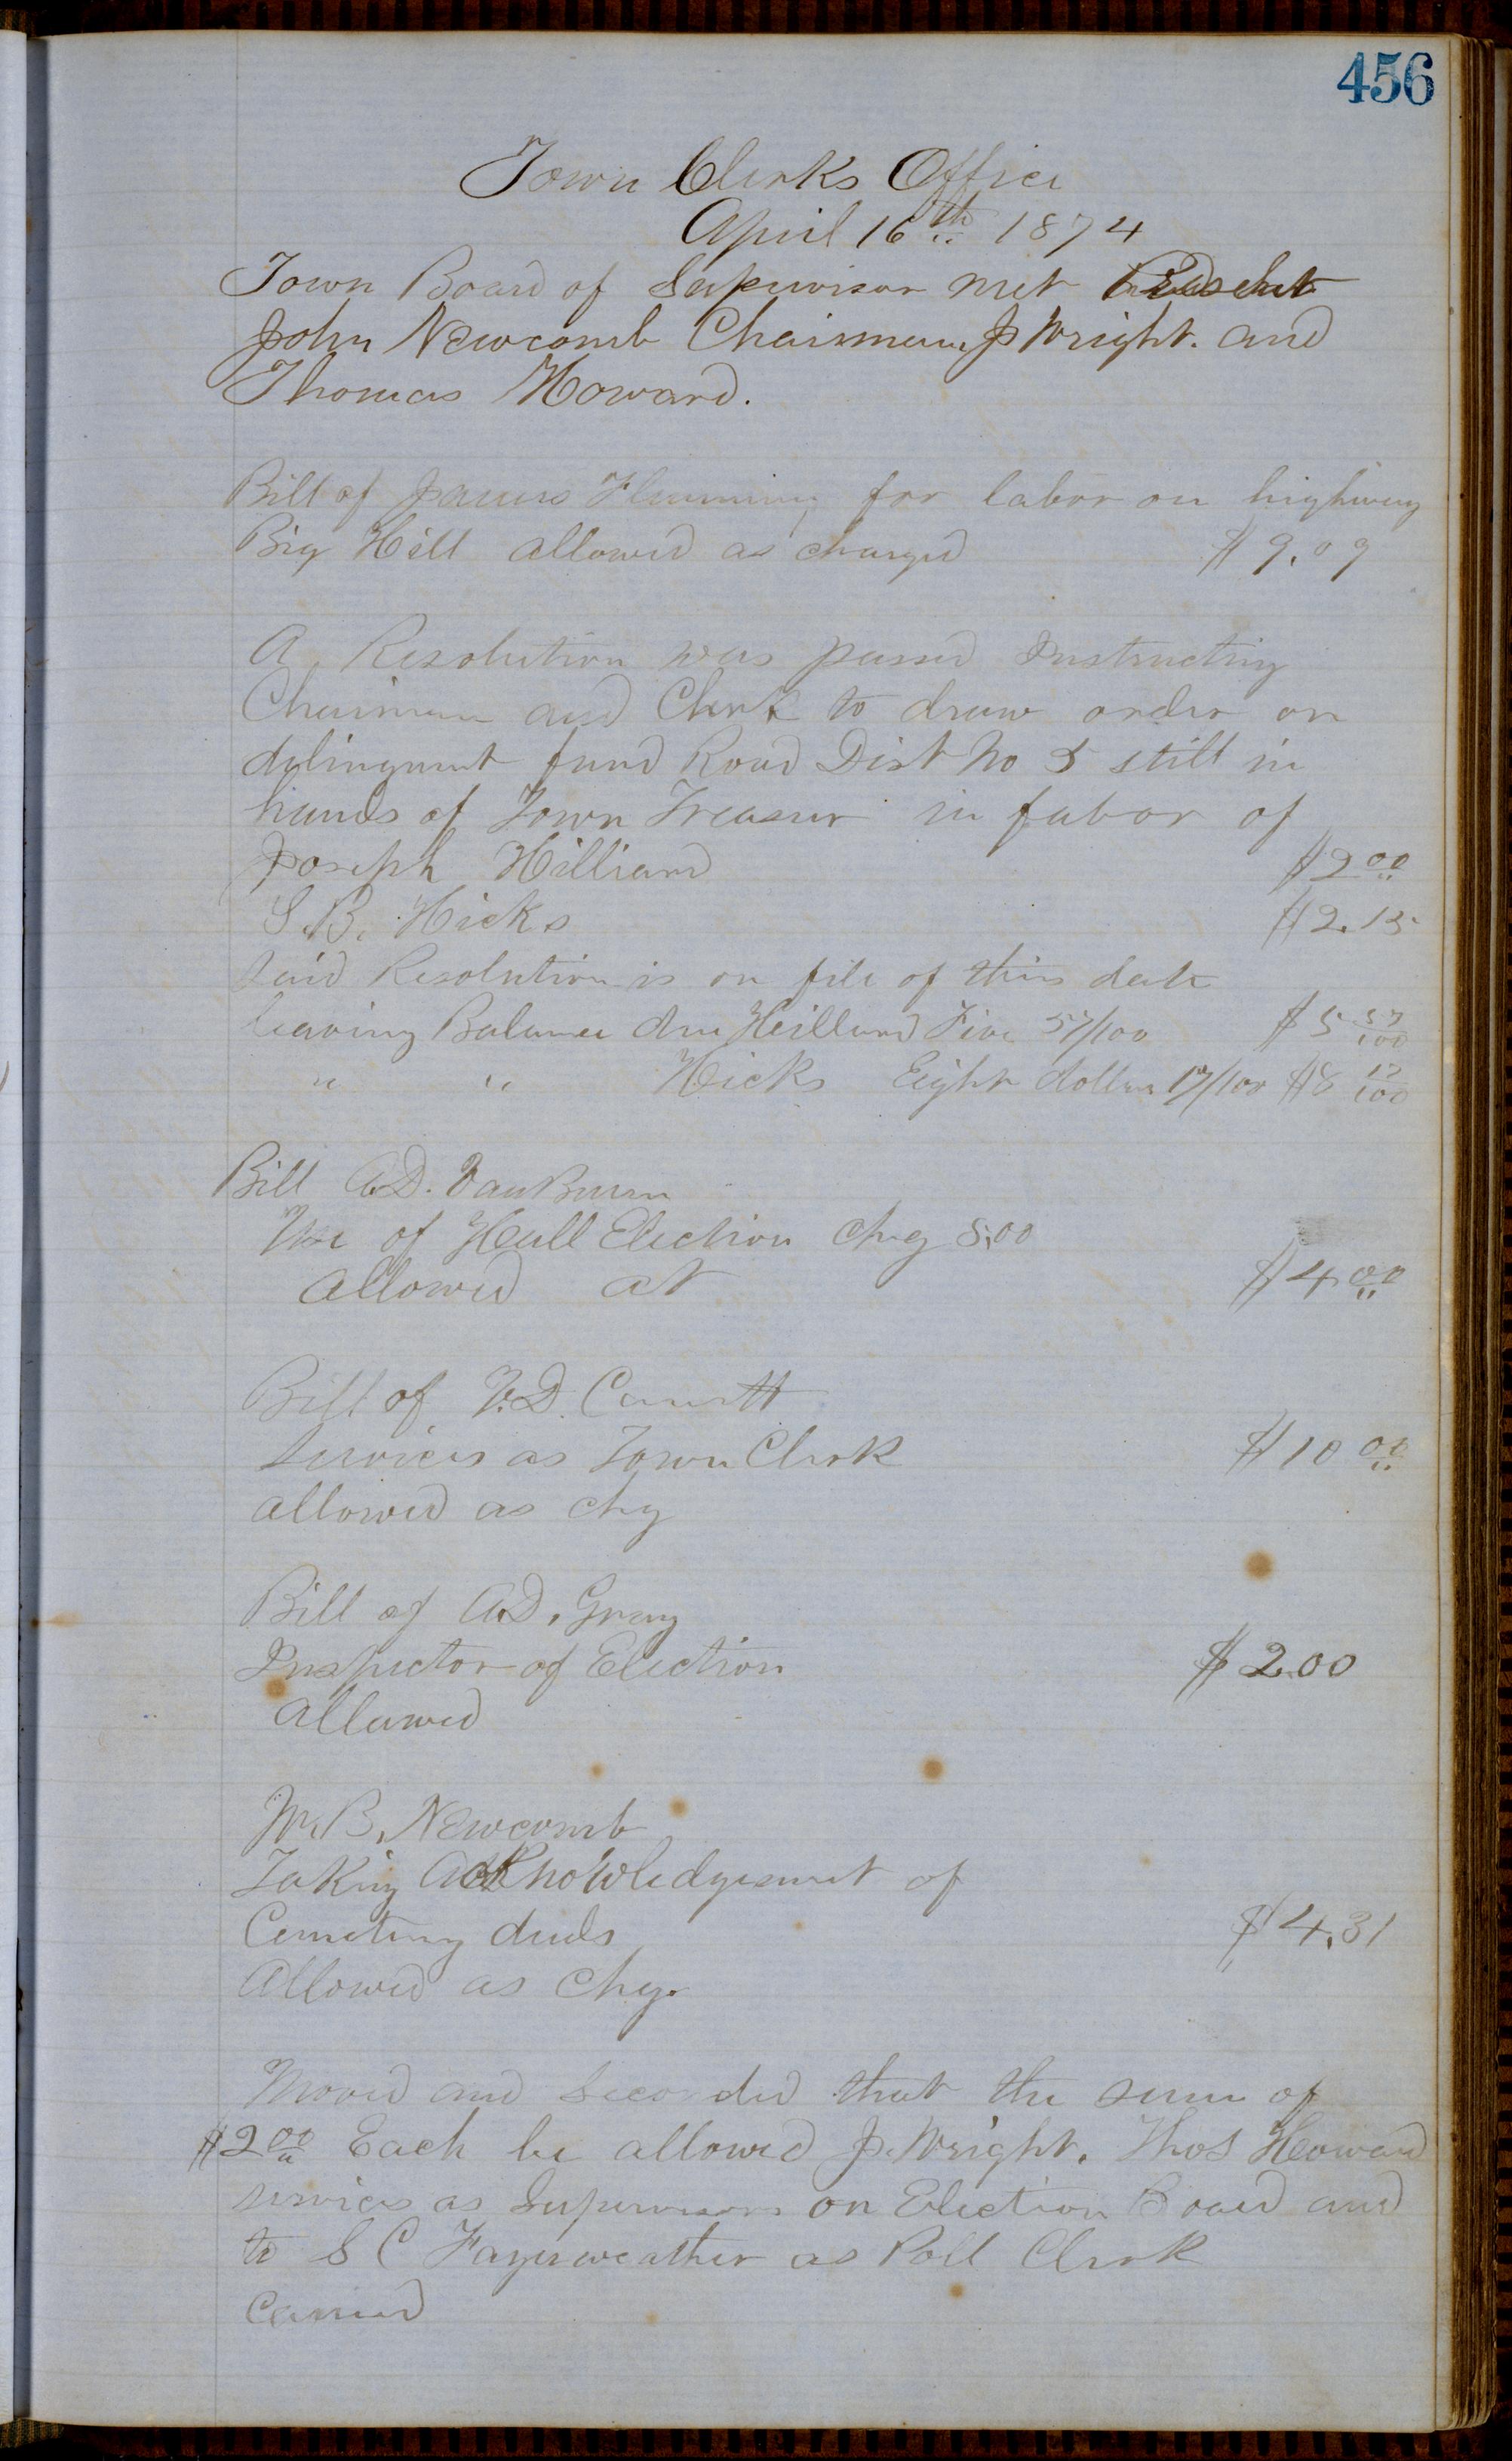 456
Town Clerks Office
April 16th 1874
Town Board of Supervisor met Present
John Newcomb Chairman J Wright. and
Thomas Howard.
Bill of James Flemming for labor on highway
Big Hill allowed as charged $9.09
A Resolution was passed Instructing
Chairman and Clerk to draw order on
delinquent fund Road Dist No 5 still in
hands of Town Treasurer in fabor of
Joseph Hilliard $2.00
S.B. Hicks $2.15
Said Resolution is on file of this date
leaving Balance due Hilliard Five 57/100 $5 57/100
" " Hicks Eight dollars 17/100 $8 17/100
Bill A.D. VanBuren
Use of Hall Election chg 5.00
allowed at $4.00
Bill of V.D.
Services as Town Clerk $10 00
allowed as chg
Bill of A.D. Gray
Inspector of Election $2.00
allowed
W.B. Newcomb
Taking Acknowledgement of
Cemetery deeds $4.31
Allowed as Chg.
Moved and Seconded that the sum of
$2.00 Each be allowed J. Wright. Thos Howard
services as Supervisors on Election Board and
to S C Fayerweather as Poll Clerk
Carried